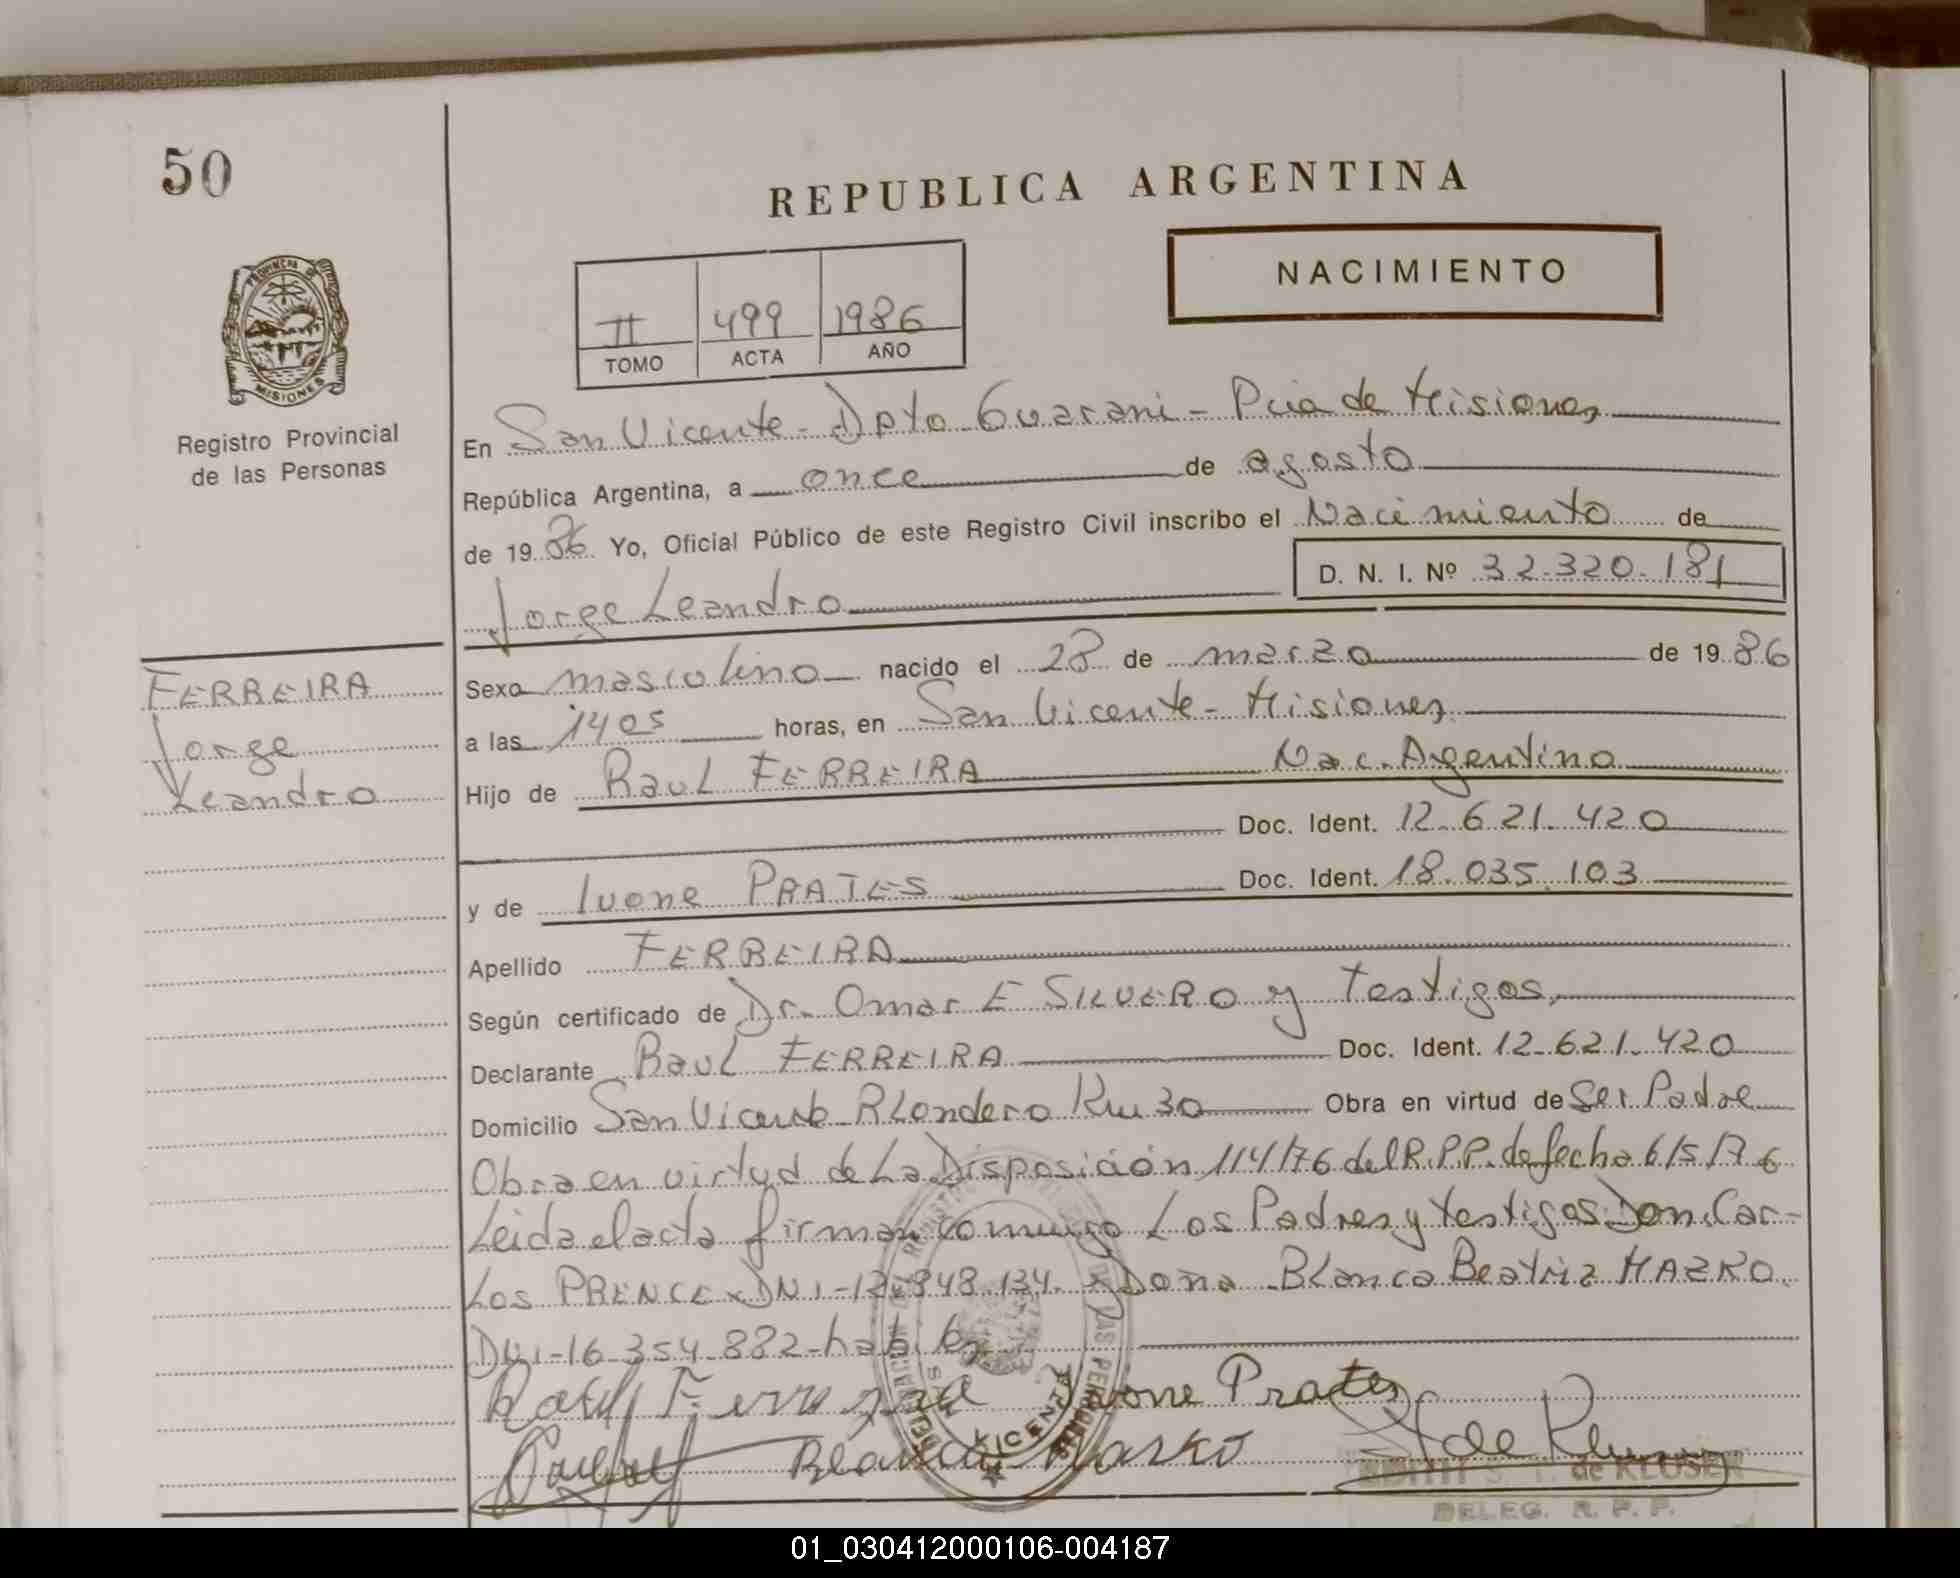 50
REPUBLICA ARGENTINA
NACIMIENTO
II 499 1986
TOMO ACTA AÑO
PROVINCIA DE MISIONES
Registro Provincial
de las Personas
En San Vicente - Dpto Guarani - Pcia de Misiones
República Argentina, a once de agosto
de 19 86 Yo, Oficial Público de este Registro Civil inscribo el Nacimiento de
D. N. I. Nº 32.320.181
Jorge Leandro
FERREIRA
Jorge
Leandro
Sexo masculino nacido el 28 de marzo de 19 86
a las 14 05 horas, en San Vicente - Misiones
Hijo de Raul FERREIRA Nac. Argentino
Doc. Ident. 12.621.420
y de Ivone PRATES Doc. Ident. 18.035.103
Apellido FERREIRA
Según certificado de Dr. Omar E SILVERO y Testigos,
Declarante Raul FERREIRA Doc. Ident. 12.621.420
Domicilio San Vicente Km 30 Obra en virtud de Ser Padre
Obra en virtud de La Disposición 114/76 del R.P.P. de fecha 6/5/76
Leida el acta firman conmigo Los Padres y testigos Don Car-
Los DNI - 848.134. Doña Blanca Beatriz
DNI - 16.354.882 -
Raul Ferreira Ivone Prates
Blanca
de KLUSER
DELEG. R. P. P.
01_030412000106-004187